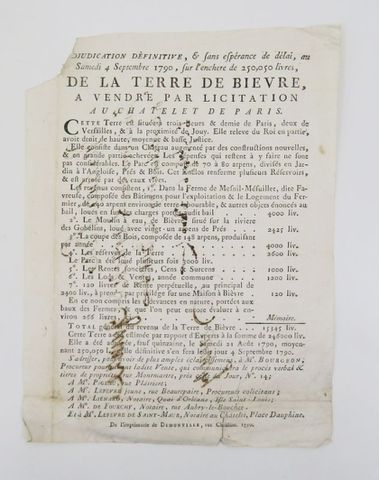 ADJUDICATION DÉFINITIVE, & sans espérance de délai, au
Samedi 4 Septembre 1790, sur l'enchere de 250,050 livres,
DE LA TERRE DE BIEVRE,
A VENDRE PAR LICITATION
AU CHATELET DE PARIS.
CETTE Terre est située à trois lieues & demie de Paris, deux de
Versailles, & à la proximité de Jouy. Elle releve du Roi en partie,
avoit droit de haute, moyenne & basse Justice.
Elle consiste dans un Château augmenté par des constructions nouvelles,
& en grande partie achevées. Les dépenses qui restent à y faire ne sont
pas considérables. Le Parc est composé de 70 à 80 arpens, divisés en Jardin
à l'Angloise, Prés & Bois. Cet enclos renferme plusieurs Réservoirs,
& est arrosé par des eaux vives.
Les revenus consistent, 1°. Dans la Ferme de Mesnil-Messiller, dite Fa-
vreuse, composée des Bâtimens pour l'exploitation & le Logement du Fer-
mier, de arpens environ de terre labourable, & autres objets énoncés au
bail, loués en sus des charges portées audit bail 4000 liv.
2°. Le Moulin à eau, de Bièvre situé sur la riviere
des Gobelins, loué avec vingt-un arpens de Prés 2425 liv.
3°. La coupe des Bois, composée de 148 arpens, produisant
par année 4000 liv.
4°. Les réserves de la Terre 2600 liv.
Le Parc a été loué plusieurs fois 3000 liv.
5°. Les Rentes foncieres, Cens & Surcens 1000 liv.
6°. Les Lods & Ventes, année commune 1200 liv.
7°. 120 livres de Rente perpétuelle, au principal de
2400 liv., à prendre par privilége sur une Maison à Bièvre 120 liv.
En ce non compris les redevances en nature, portées aux
baux des Fermiers, & que l'on peut encore évaluer à en-
viron 266 livres Memoire.
TOTAL du revenu de la Terre de Bièvre 15345 liv.
Cette Terre a été estimée par rapport d'Experts à la somme de 246000 liv.
Elle a été adjugée, sauf quinzaine, le Samedi 21 Août 1790, moyen-
nant 250,050 liv. Elle le sera définitivement ledit jour 4 Septembre 1790.
S'adresser, pour avoir de plus amples éclaircissemens, à Me. BOURGNON,
Procureur poursuivant ladite Vente, qui communiquera le procès verbal &
titres de propriété, rue Montmartre, près celle du Jour, N°. 14;
A Me. Plâtriere;
A Me. LEFEBVRE jeune, rue Beaurepaire, Procureurs colicitans;
A Me. LIENARD, Notaire, Quai d'Orléans, Isle Saint-Louis;
A Me. DE FOURCHY, Notaire, rue Aubry-le-Boucher
Et à Me. LEFEVRE DE SAINT-MAUR, Notaire au Châtelet, Place Dauphine.
De l'Imprimerie de DEMONVILLE, rue Christine. 1790.